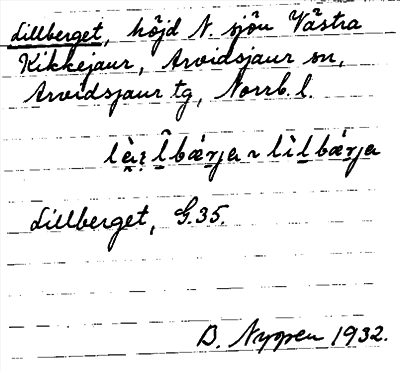 Lillberget, höjd N. sjön Västra
Kikkejaur, Arvidsjaur sn,
Arvidsjaur tg, Norrb. l.
Lillberget, G.35.
D. Nygren 1932.